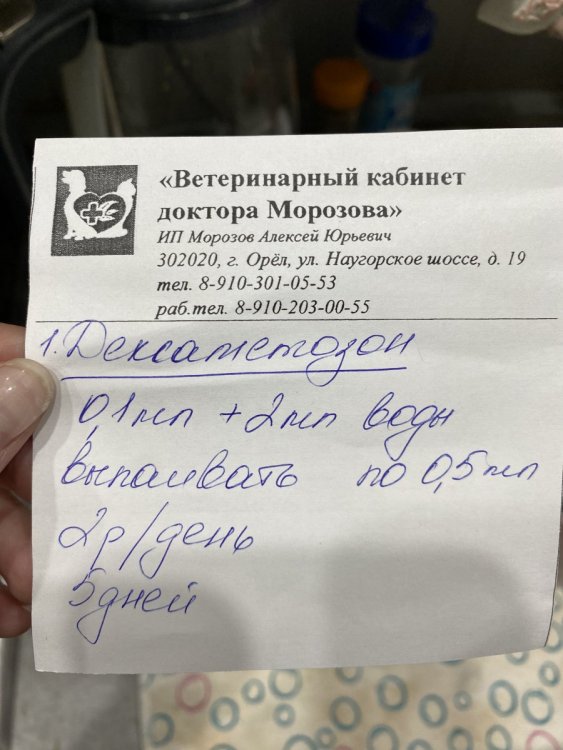 «Ветеринарный кабинет
доктора Морозова»
ИП Морозов Алексей Юрьевич
302020, г. Орёл, ул. Наугорское шоссе, д. 19
тел. 8-910-301-05-53
раб.тел. 8-910-203-00-55
1. Дексаметозон
0,1мл + 2мл воды
выпаивать по 0,5мл
2р/день
5дней